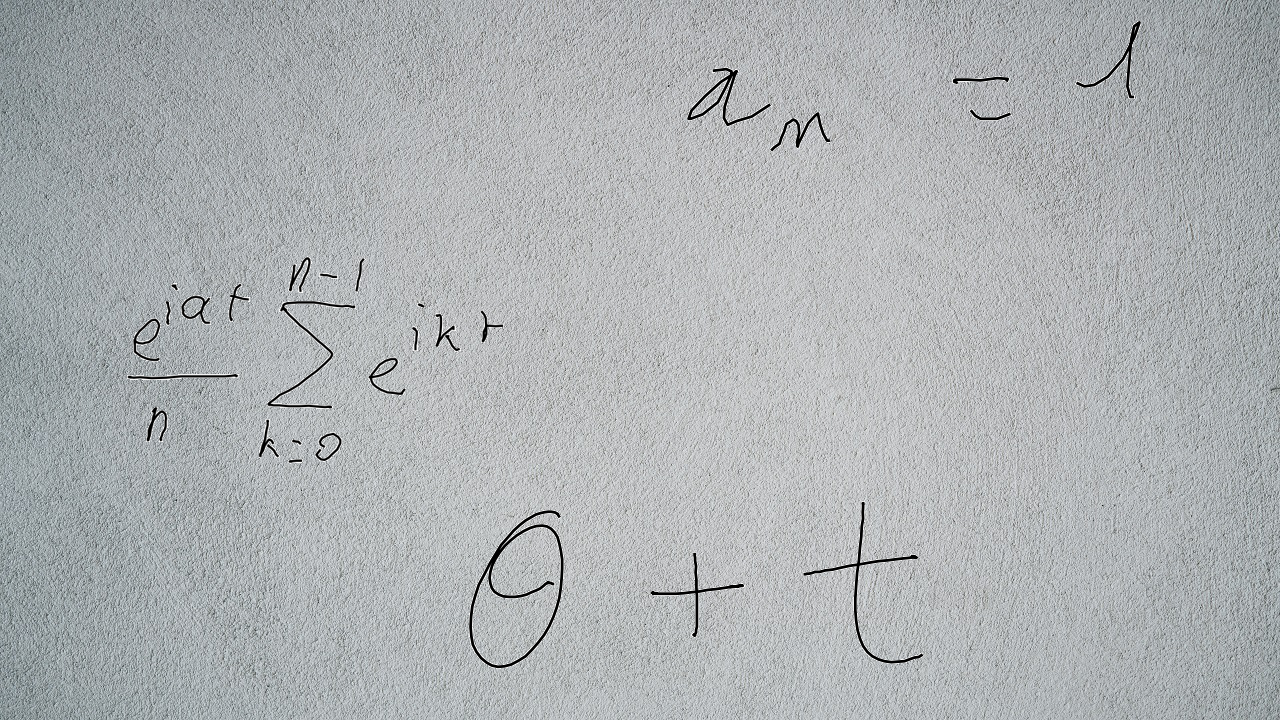 a_m = 1
\frac{e^{iat}}{n} \sum_{k=0}^{n-1} e^{ikt}
θ + t